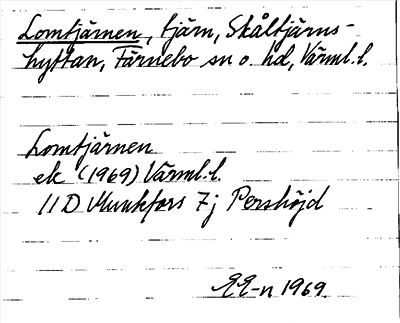 Lomtjärnen, tjärn, Skåltjärns-
hyttan, Färnebo sn o. hd, Värml. l.
Lomtjärnen
ek (1969) Värml. l.
11D Munkfors 7j Pershöjd
1969.